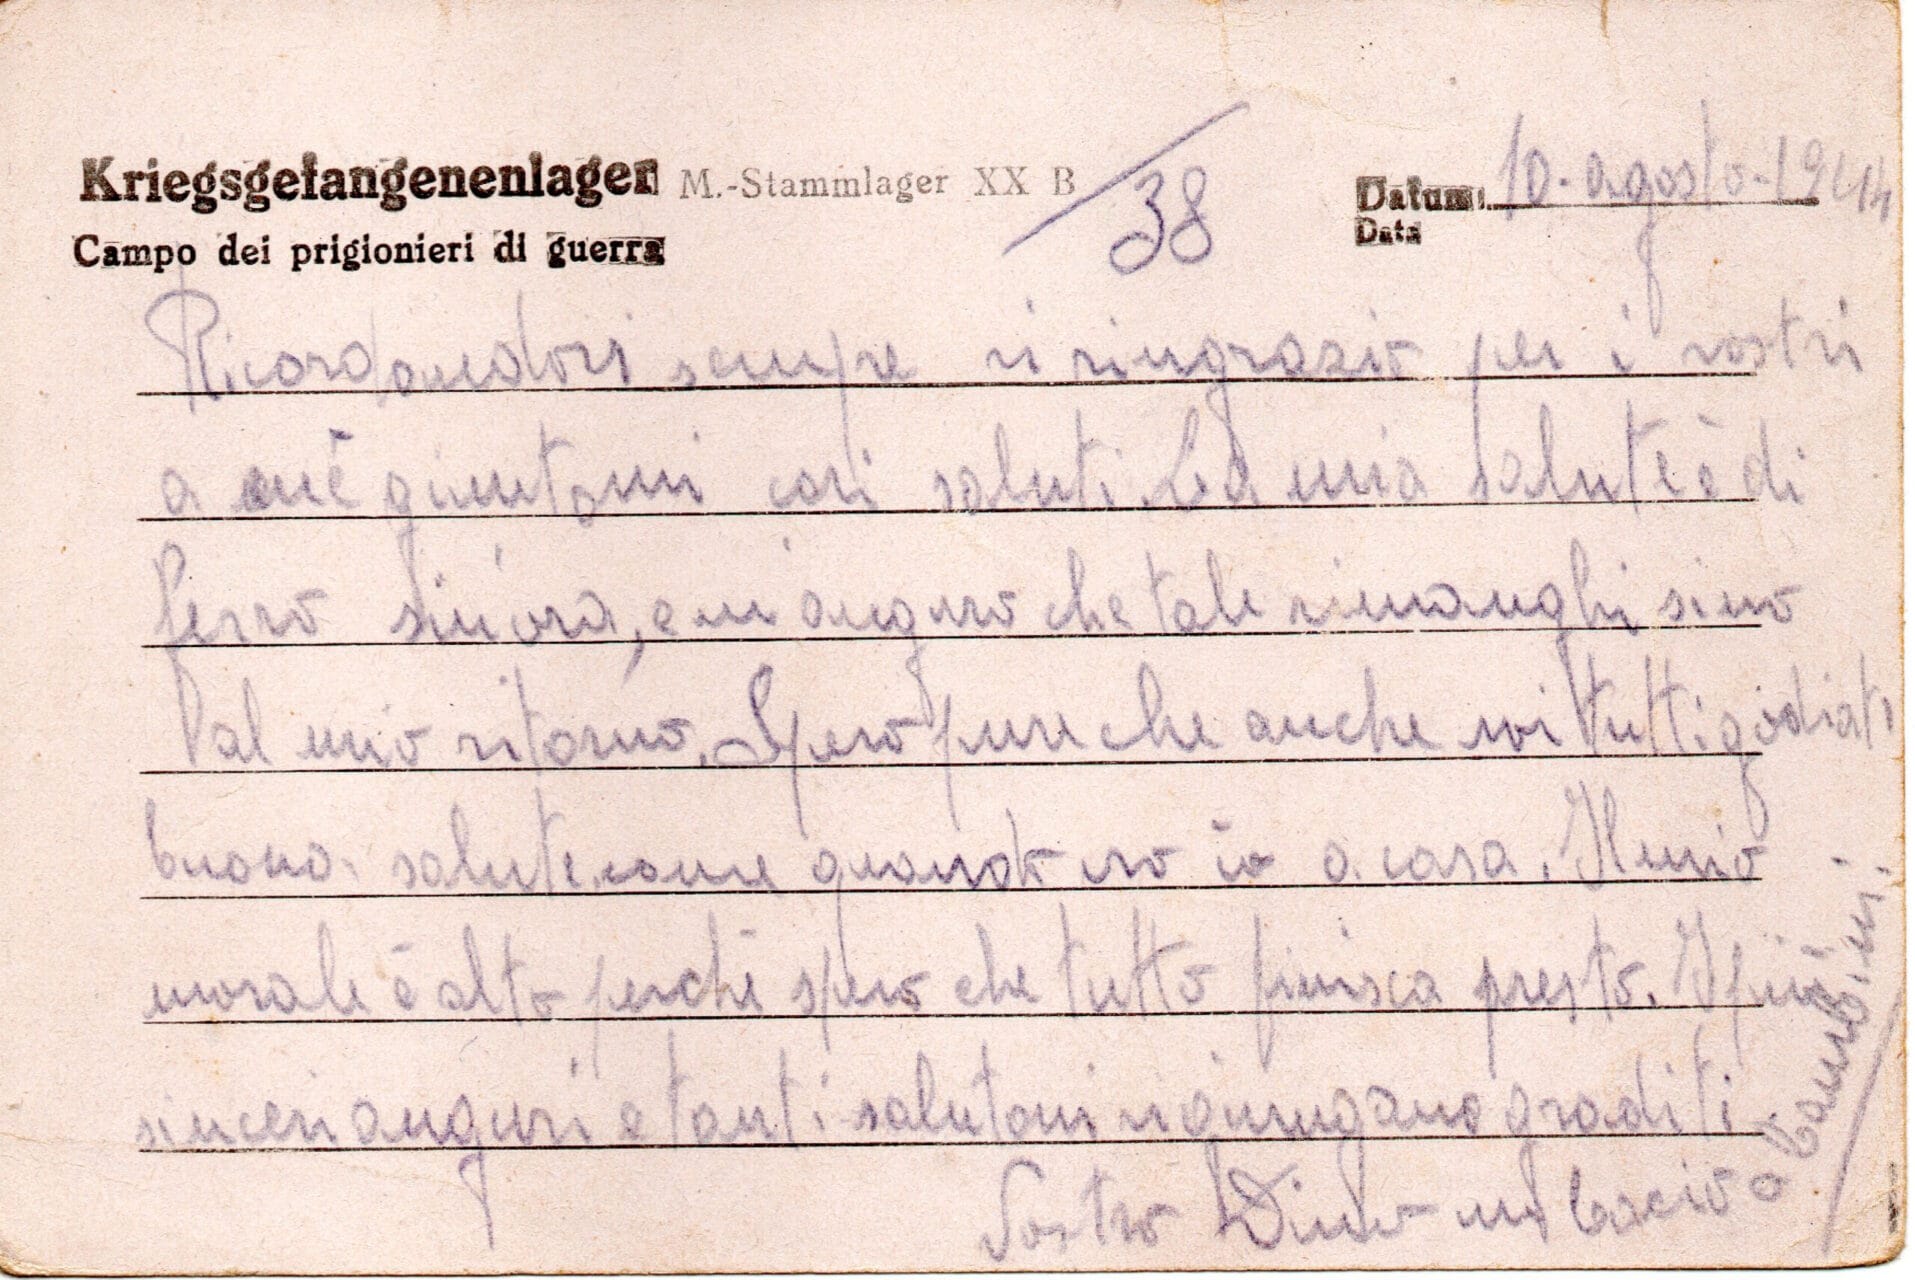 Kriegsgefangenenlager M.-Stammlager XX B
38
Datum: 10-agosto-1944
Campo dei prigionieri di guerra
Data
Ricordandovi sempre vi ringrazio per i vostri
a me giuntomi cari saluti. La mia salute è di
ferro sin'ora, e mi auguro che tale rimanghi sino
al mio ritorno. Spero pure che anche voi tutti godiate
buona salute come quando ero io a casa. Il mio
morale è alto perchè spero che tutto finisca presto. I più
sinceri auguri e tanti salutoni vi giungano graditi
Vostro Dino un bacio
a bambini.